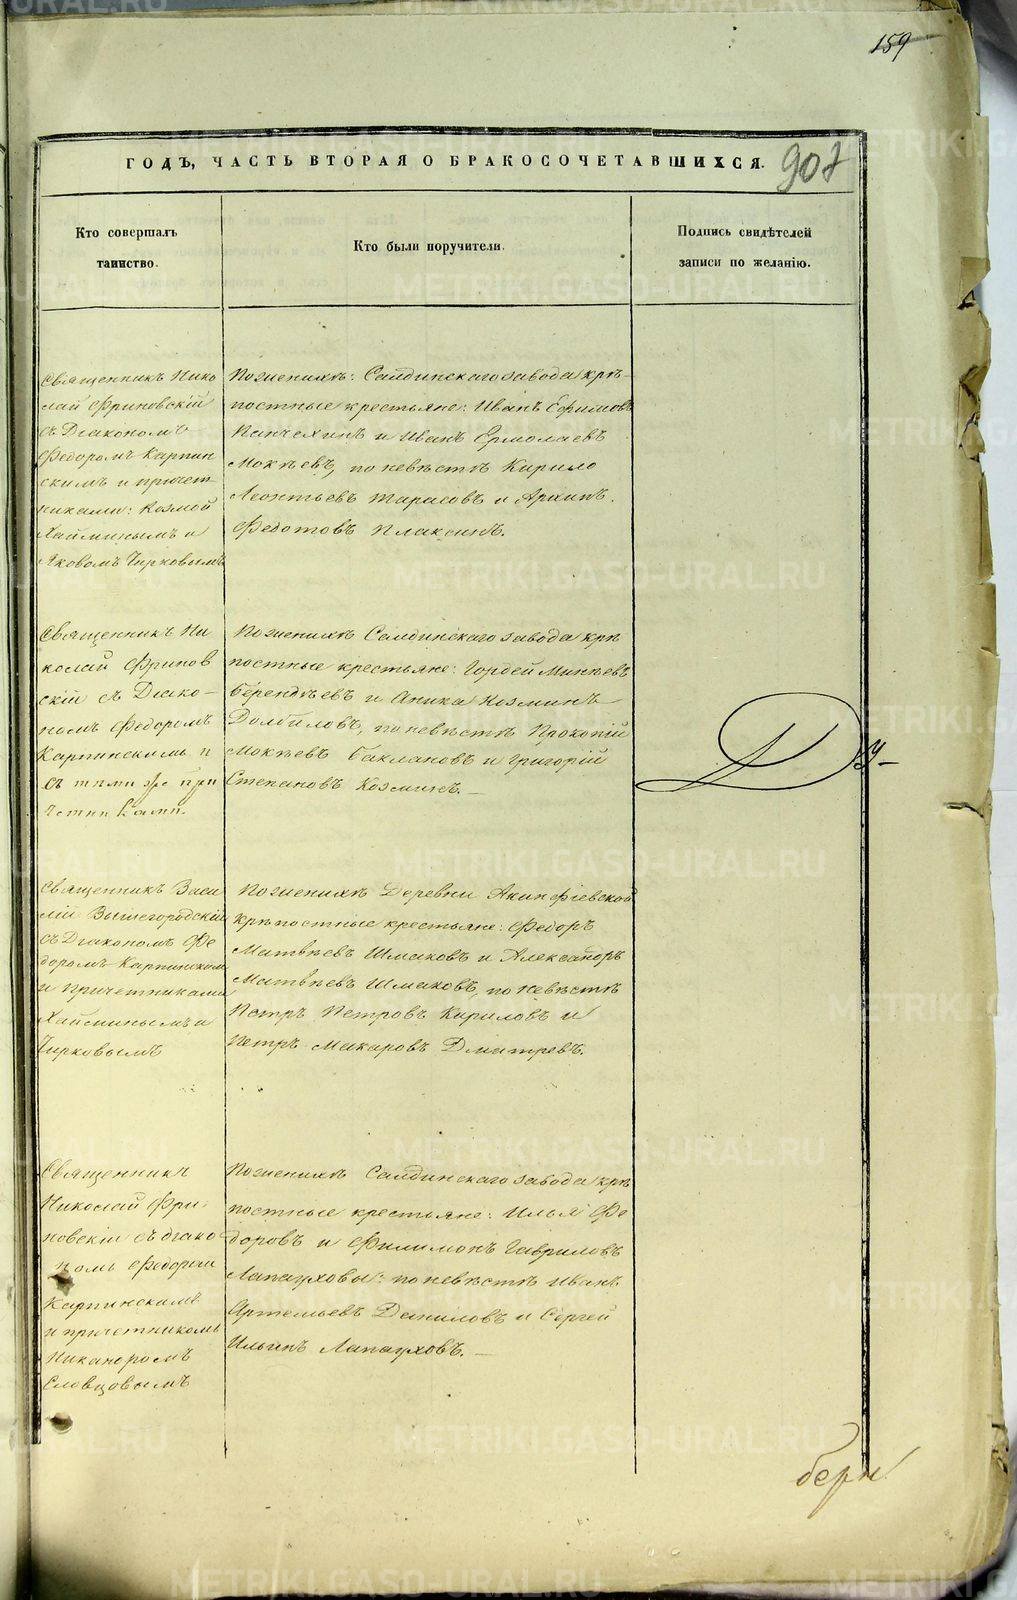 159
ГОДЪ, ЧАСТЬ ВТОРАЯ О БРАКОСОЧЕТАВШИХСЯ.
907
Кто совершалъ
таинство.
Кто были поручители.
Подпись свидѣтелей
записи по желанію.
Священникъ Нико
лай Фриновскій
съ Діакономъ
Федоромъ Карпин
скимъ и причет
никами: Козмой
Хайминымъ и
Яковомъ Чирковымъ
По женихѣ: Салдинскаго завода крѣ-
постные крестьяне: Иванъ Ефимовъ
и Иванъ Ермолаевъ
Мокѣевъ, по невѣстѣ Кирило
Леонтьевъ Тарасовъ и Архипъ
Федотовъ Плаксинъ.
Священникъ Ни
колай Фринов
скій съ Діако-
номъ Федоромъ
Карпинскимъ и
съ тѣми же при
четниками.
По женихѣ Салдинскаго завода крѣ
постные крестьяне: Гордей Минѣевъ
Берендѣевъ и Аника Козминъ
Долбиловъ, по невѣстѣ Прокопій
Мокѣевъ Баклановъ и Григорій
Степановъ Козминъ.—
Священникъ Васи
лій Вышегородскій
съ Діакономъ Фе
доромъ Карпинскимъ
и причетниками
Хайминымъ и
Чирковымъ
По женихѣ Деревни Акинфіевской
крѣпостные крестьяне: Федоръ
Матвѣевъ Шмаковъ и Александръ
Матвѣевъ Шмаковъ, по невѣстѣ
Петръ Петровъ Кириловъ и
Петръ Макаровъ Дмитревъ.
Священникъ
Николай Фри-
новскій съ діако
номъ Федоромъ
Карпинскимъ
и причетникомъ
Никаноромъ
Словцовымъ
По женихѣ Салдинскаго завода крѣ
постные крестьяне: Илья Фе
доровъ и Филимонъ Гавриловъ
Лапауховы: по невѣстѣ Иванъ
Артемьевъ Даниловъ и Сергей
Ильинъ Лапауховъ.—
METRIKI.GASO-URAL.RU